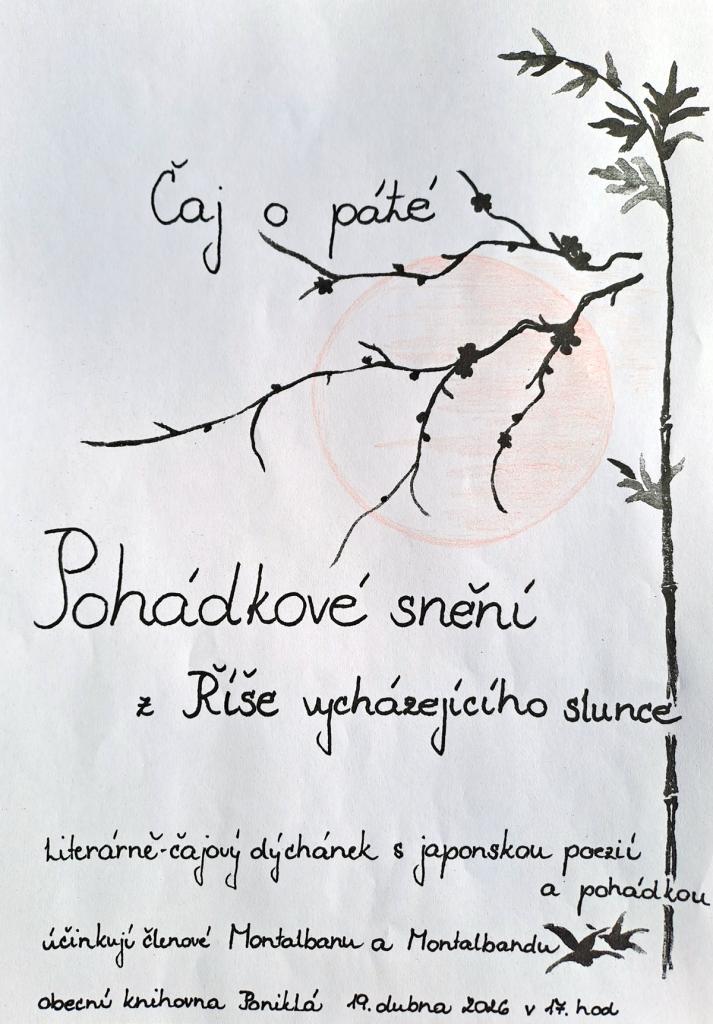 Čaj o páté
Pohádkové snění
z Říše vycházejícího slunce
Literárně-čajový dýchánek s japonskou poezií
a pohádkou
účinkují členové Montalbanu a Montalbandu
obecní knihovna Poniklá 19. dubna 2026 v 17. hod